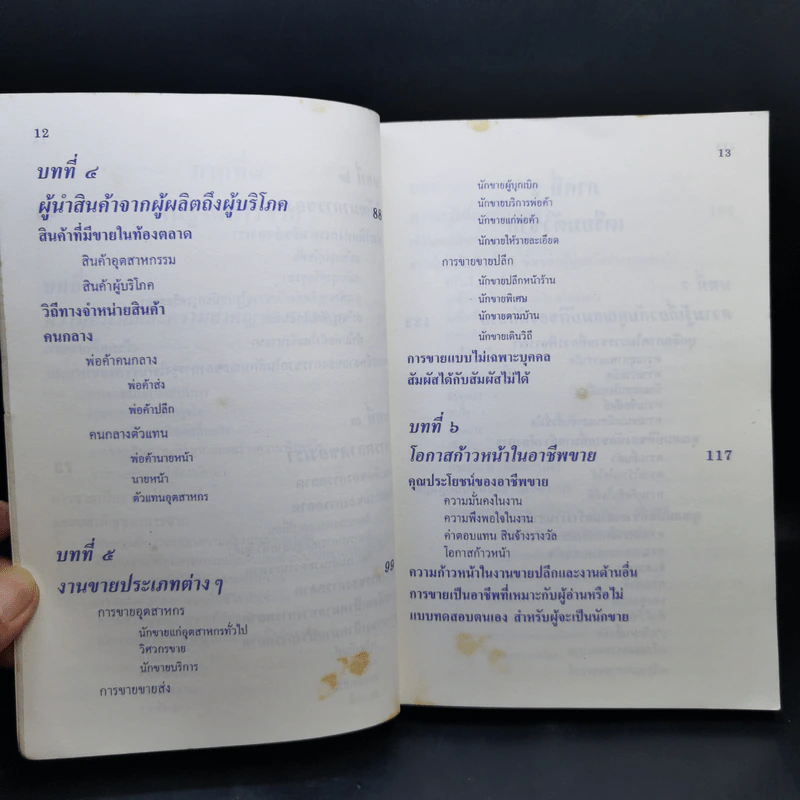 12
บทที่ ๔
ผู้นำสินค้าจากผู้ผลิตถึงผู้บริโภค 88
สินค้าที่มีขายในท้องตลาด
สินค้าอุตสาหกรรม
สินค้าผู้บริโภค
วิถีทางจำหน่ายสินค้า
คนกลาง
พ่อค้าคนกลาง
พ่อค้าส่ง
พ่อค้าปลีก
คนกลางตัวแทน
พ่อค้านายหน้า
นายหน้า
ตัวแทนอุตสาหกร
บทที่ ๕
งานขายประเภทต่าง ๆ 99
การขายอุตสาหกร
นักขายแก่อุตสาหกรทั่วไป
วิศวกรขาย
นักขายบริการ
การขายขายส่ง
13
นักขายผู้บุกเบิก
นักขายบริการพ่อค้า
นักขายแก่พ่อค้า
นักขายให้รายละเอียด
การขายขายปลีก
นักขายปลีกหน้าร้าน
นักขายพิเศษ
นักขายตามบ้าน
นักขายเดินวิถี
การขายแบบไม่เฉพาะบุคคล
สัมผัสได้กับสัมผัสไม่ได้
บทที่ ๖
โอกาสก้าวหน้าในอาชีพขาย 117
คุณประโยชน์ของอาชีพขาย
ความมั่นคงในงาน
ความพึงพอใจในงาน
ค่าตอบแทน สินจ้างรางวัล
โอกาสก้าวหน้า
ความก้าวหน้าในงานขายปลีกและงานด้านอื่น
การขายเป็นอาชีพที่เหมาะกับผู้อ่านหรือไม่
แบบทดสอบตนเอง สำหรับผู้จะเป็นนักขาย